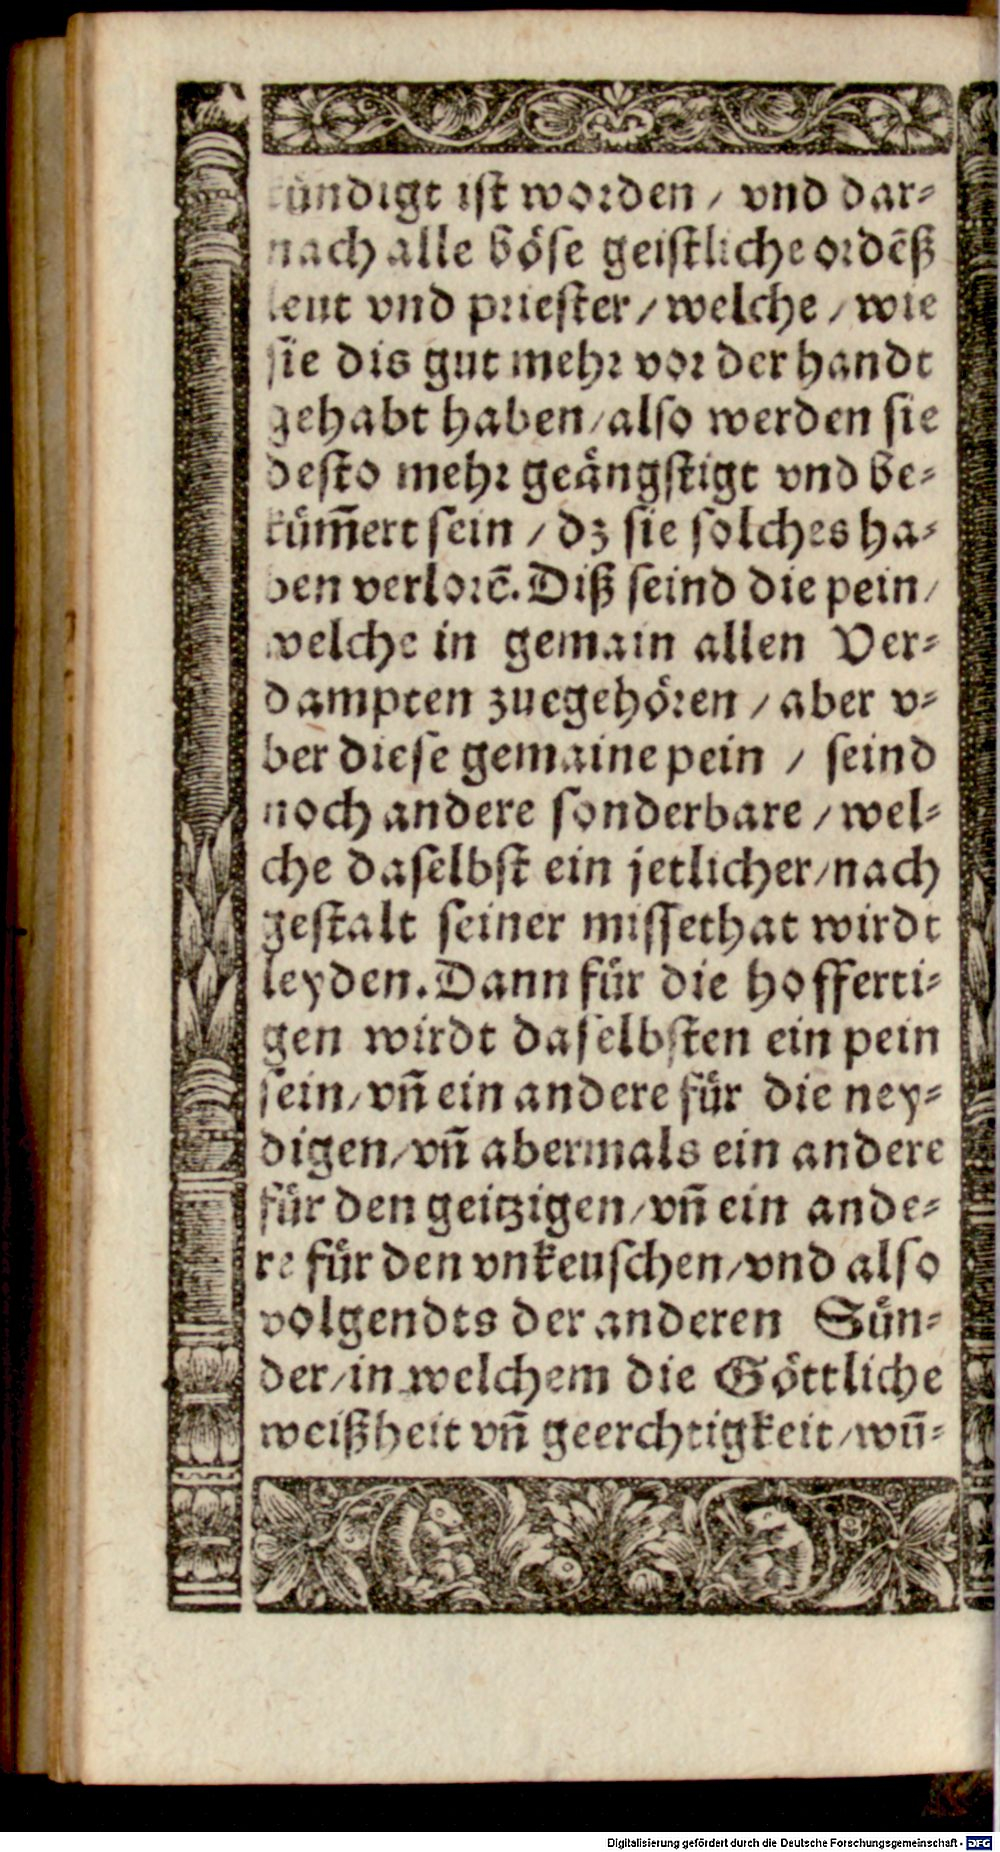 kündigt ist worden / vnd dar⸗
nach alle böse geistliche ordēß
leut vnd priester / welche / wie
sie dis gut mehr vor der handt
gehabt haben / also werden sie
desto mehr geängstigt vnd be⸗
küm̄ert sein / dz sie solches ha⸗
ben verlorē. Diß seind die pein /
welche in gemain allen Ver⸗
dampten zuegehören / aber v⸗
ber diese gemaine pein / seind
noch andere sonderbare / wel⸗
che daselbst ein jetlicher / nach
gestalt seiner missethat wirdt
leyden. Dann für die hofferti⸗
gen wirdt daselbsten ein pein
sein / vn̄ ein andere für die ney⸗
digen / vn̄ abermals ein andere
für den geitzigen / vn̄ ein ande⸗
re für den vnkeuschen / vnd also
volgendts der anderen Sün⸗
der / in welchem die Göttliche
weißheit vn̄ geerchtigkeit / wun̄⸗
Digitalisierung gefördert durch die Deutsche Forschungsgemeinschaft - DFG